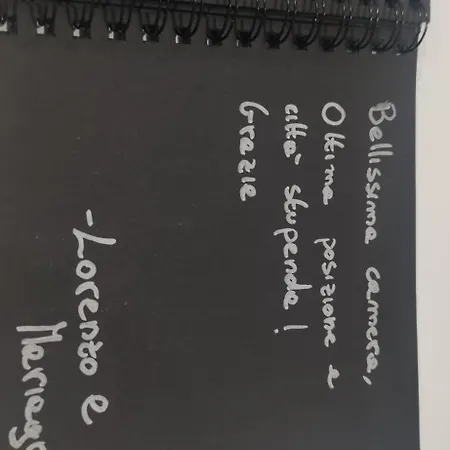 Bellissima camera,
Ottima posizione e
città stupenda!
Grazie
-Lorenzo e